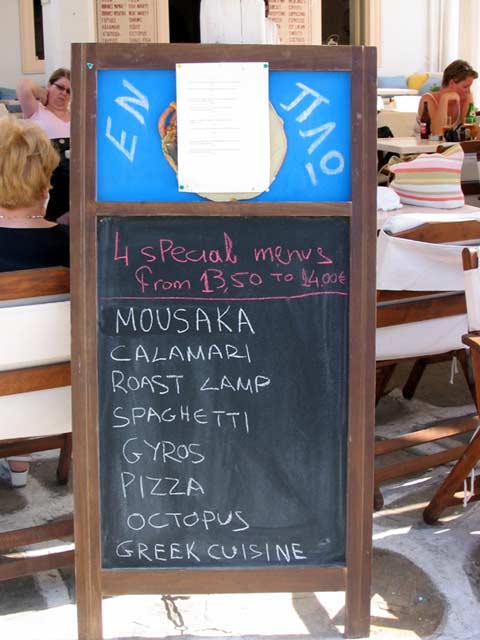 ΕΝ ΠΛΩ
4 special menus
from 13,50 To 14.00€
MOUSAKA
CALAMARI
ROAST LAMP
SPAGHETTI
GYROS
PIZZA
OCTOPUS
GREEK CUISINE